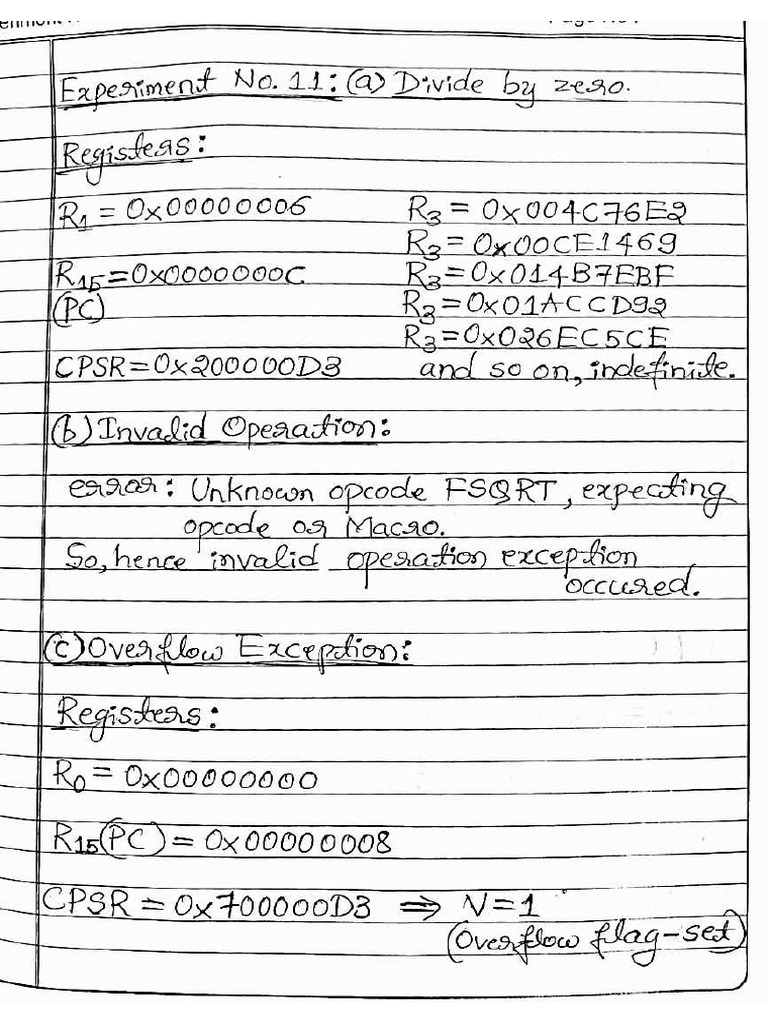 Experiment No. 11: (a) Divide by zero.
Registers:
R1 = 0x00000006 R3 = 0x004C76E2
R3 = 0x00CE1469
R15 = 0x0000000C R3 = 0x014B7EBF
(PC) R3 = 0x01ACCD92
R3 = 0x026EC5CE
CPSR = 0x200000D3 and so on, indefinite.
(b) Invalid Operation:
error: Unknown opcode FSQRT, expecting
opcode or Macro.
So, hence invalid operation exception
occured.
(c) Overflow Exception:
Registers:
R0 = 0x00000000
R15(PC) = 0x00000008
CPSR = 0x700000D3 ⇒ V=1
(Overflow flag-set)